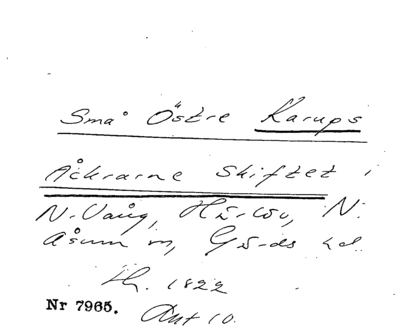 Små Östre Karups
Åckrarne Skiftet i
N. Vång, Härlöv, N.
Åsum sn, Gärds hd
Lh. 1822
Nr 7965. Akt 10.